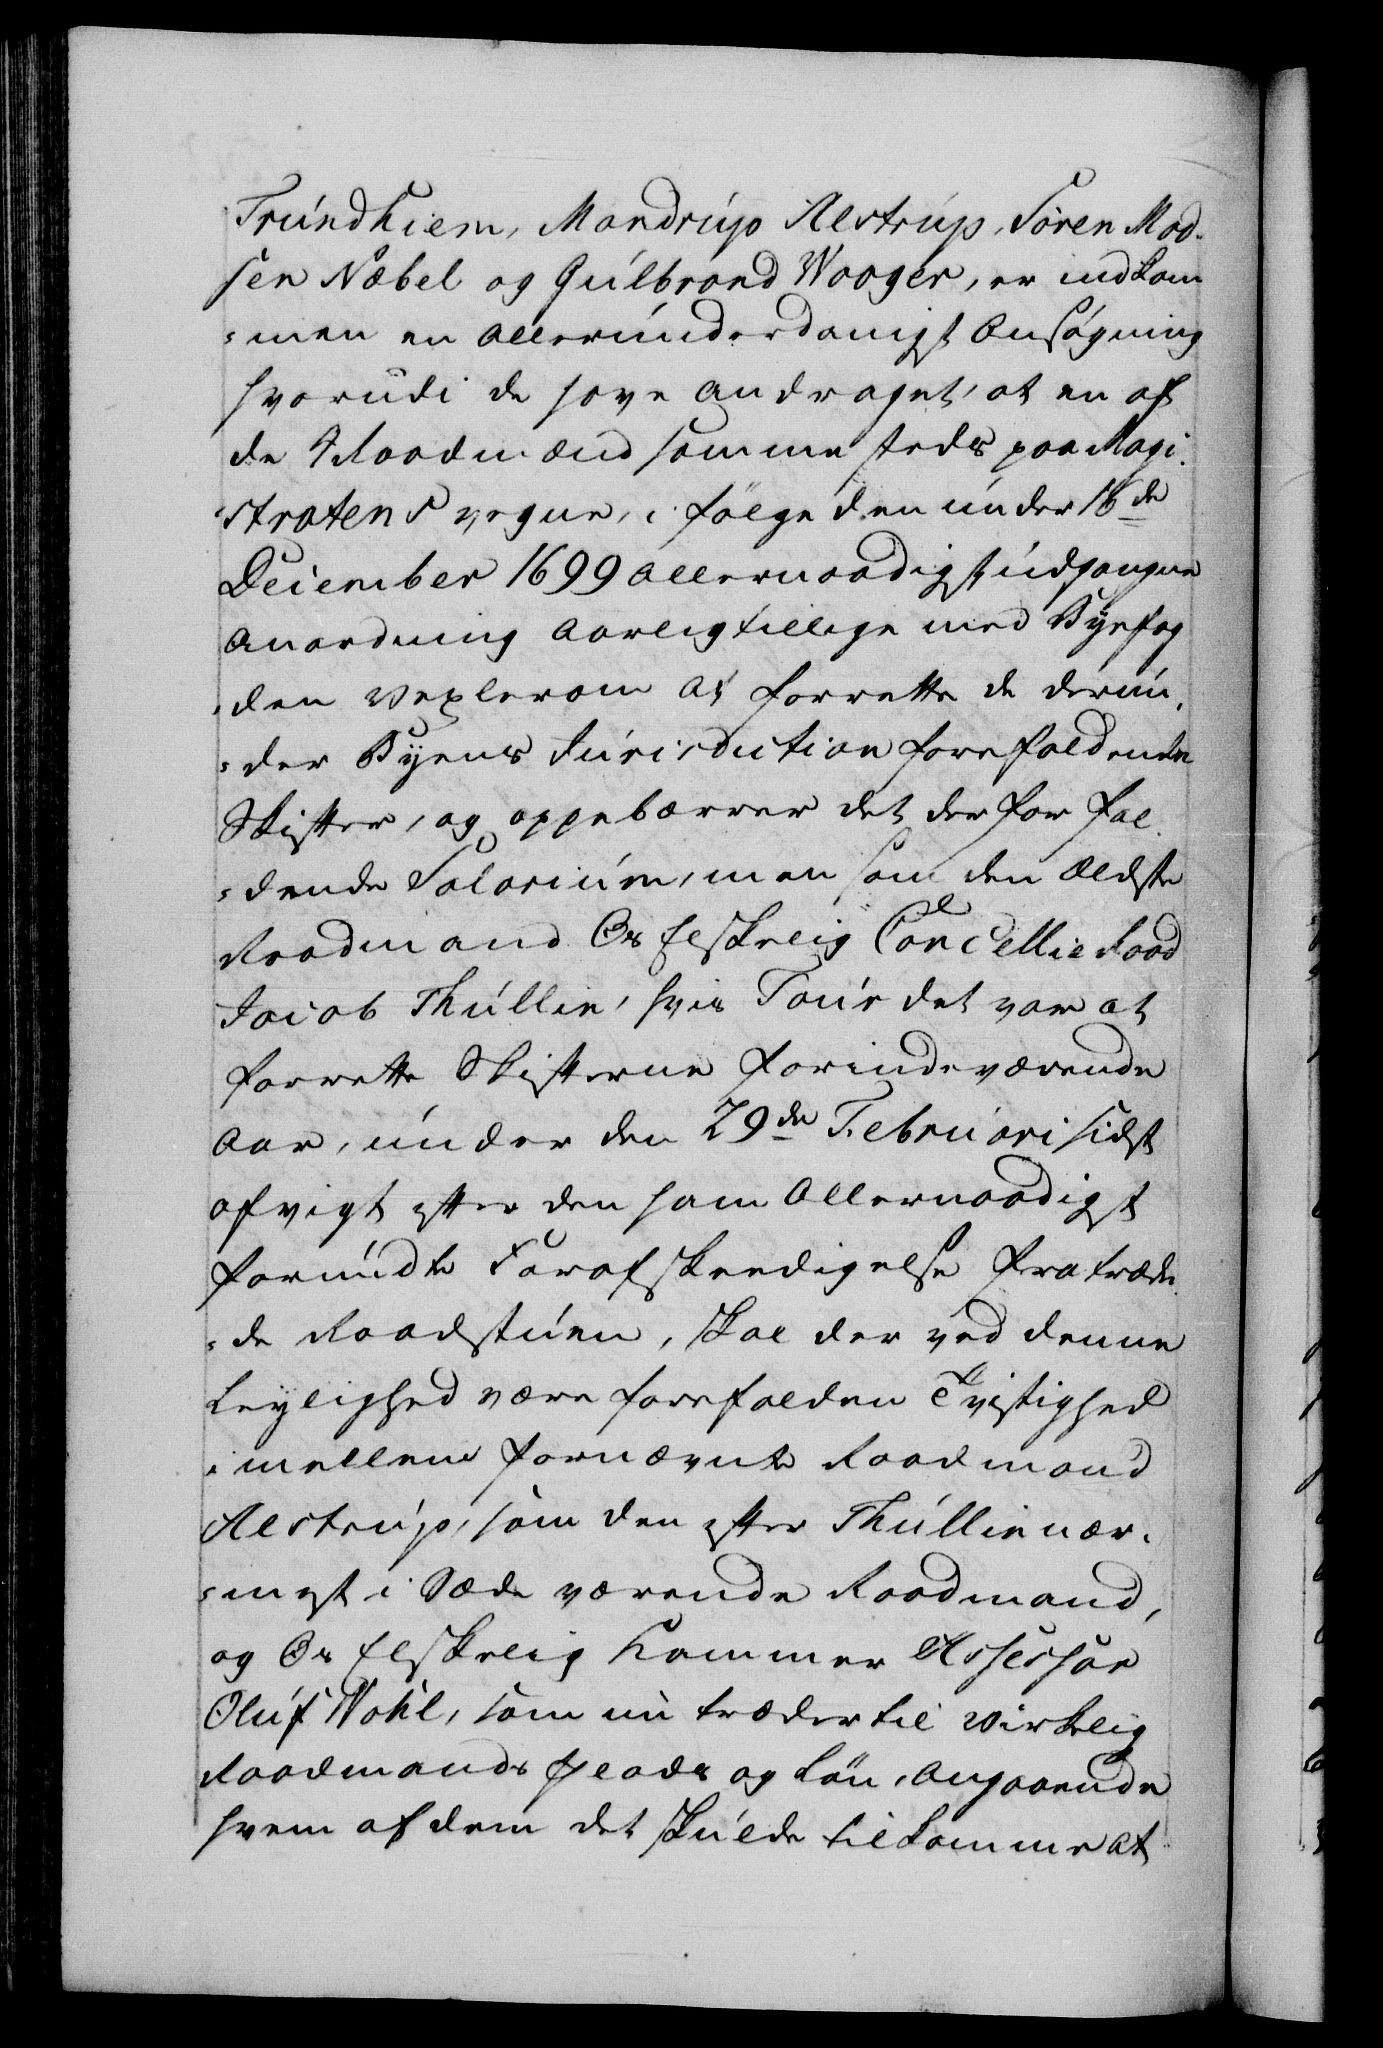 Trundhiem, Mandrup Alstrup, Søren Mad-
sen Næbel og Gulbrand Waager, er indkom
=men en allerunderdanigst Ansøgning
hvorudi de have andraget, at en af
de Raadmænd samme steds paa Magi-
stratens vegne, i følge den under 16de
December 1699 allernaadigst udgangne
Anordning Aarlig tillige med Byefog
=den vexlerom at forrette de derun-
=der Byens Jurisdiction forefaldende
Skifter, og oppebærrer det derfor fal-
=dende Salarium, men som den ældste
Raadmand Os elskelig Cancellie Raad
Jacob Thullin, hvis Tour det var at
forrette Skifterne for indeværende
Aar, under den 29de Februari sidst
afvigt efter den ham Allernaadigst
forundte Forafskeedigelse fratræd-
=de Raadstuen, skal der ved denne
Leylighed være forefalden Tvistighed
imellem fornævnte Raadmand
Alstrup, som den efter Thullin nær-
=mest i Sæde værende Raadmand,
og Os elskelig Kammer Assessor
Oluf Wohl, som nu træder til virkelig
Raadmands Plads og Løn, angaaende
hvem af dem det skulde tilkomme at